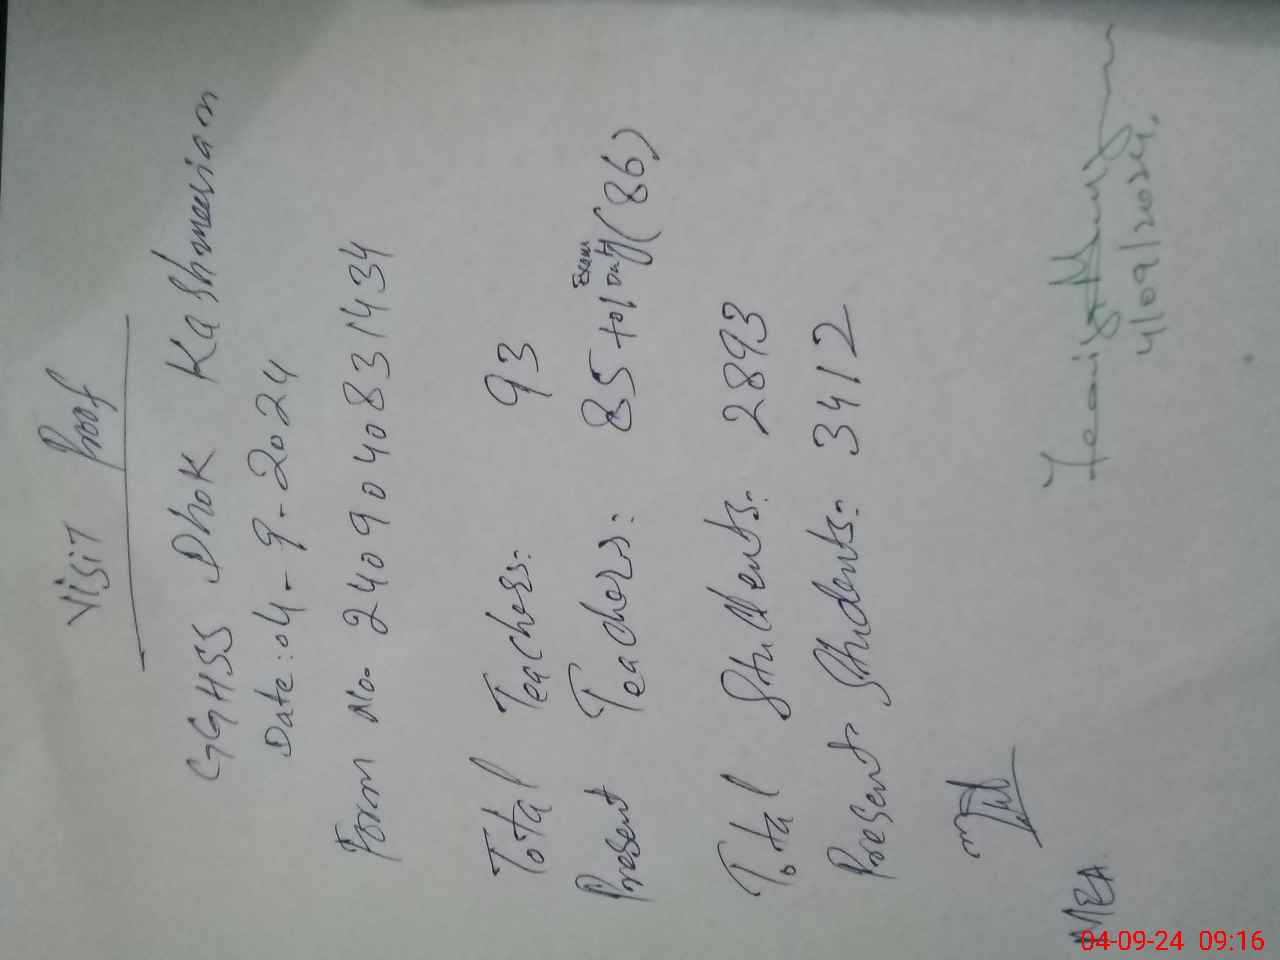 Visit Proof
GGHSS Dhok Kashmeerian
Date: 04-9-2024
Form No. 2409040831434
Total Teachers: 93
Present Teachers: 85 + 01 Exam Duty (86)
Total Students: 2893
Present Students: 3412
MEA
4/09/2024.
04-09-24 09:16